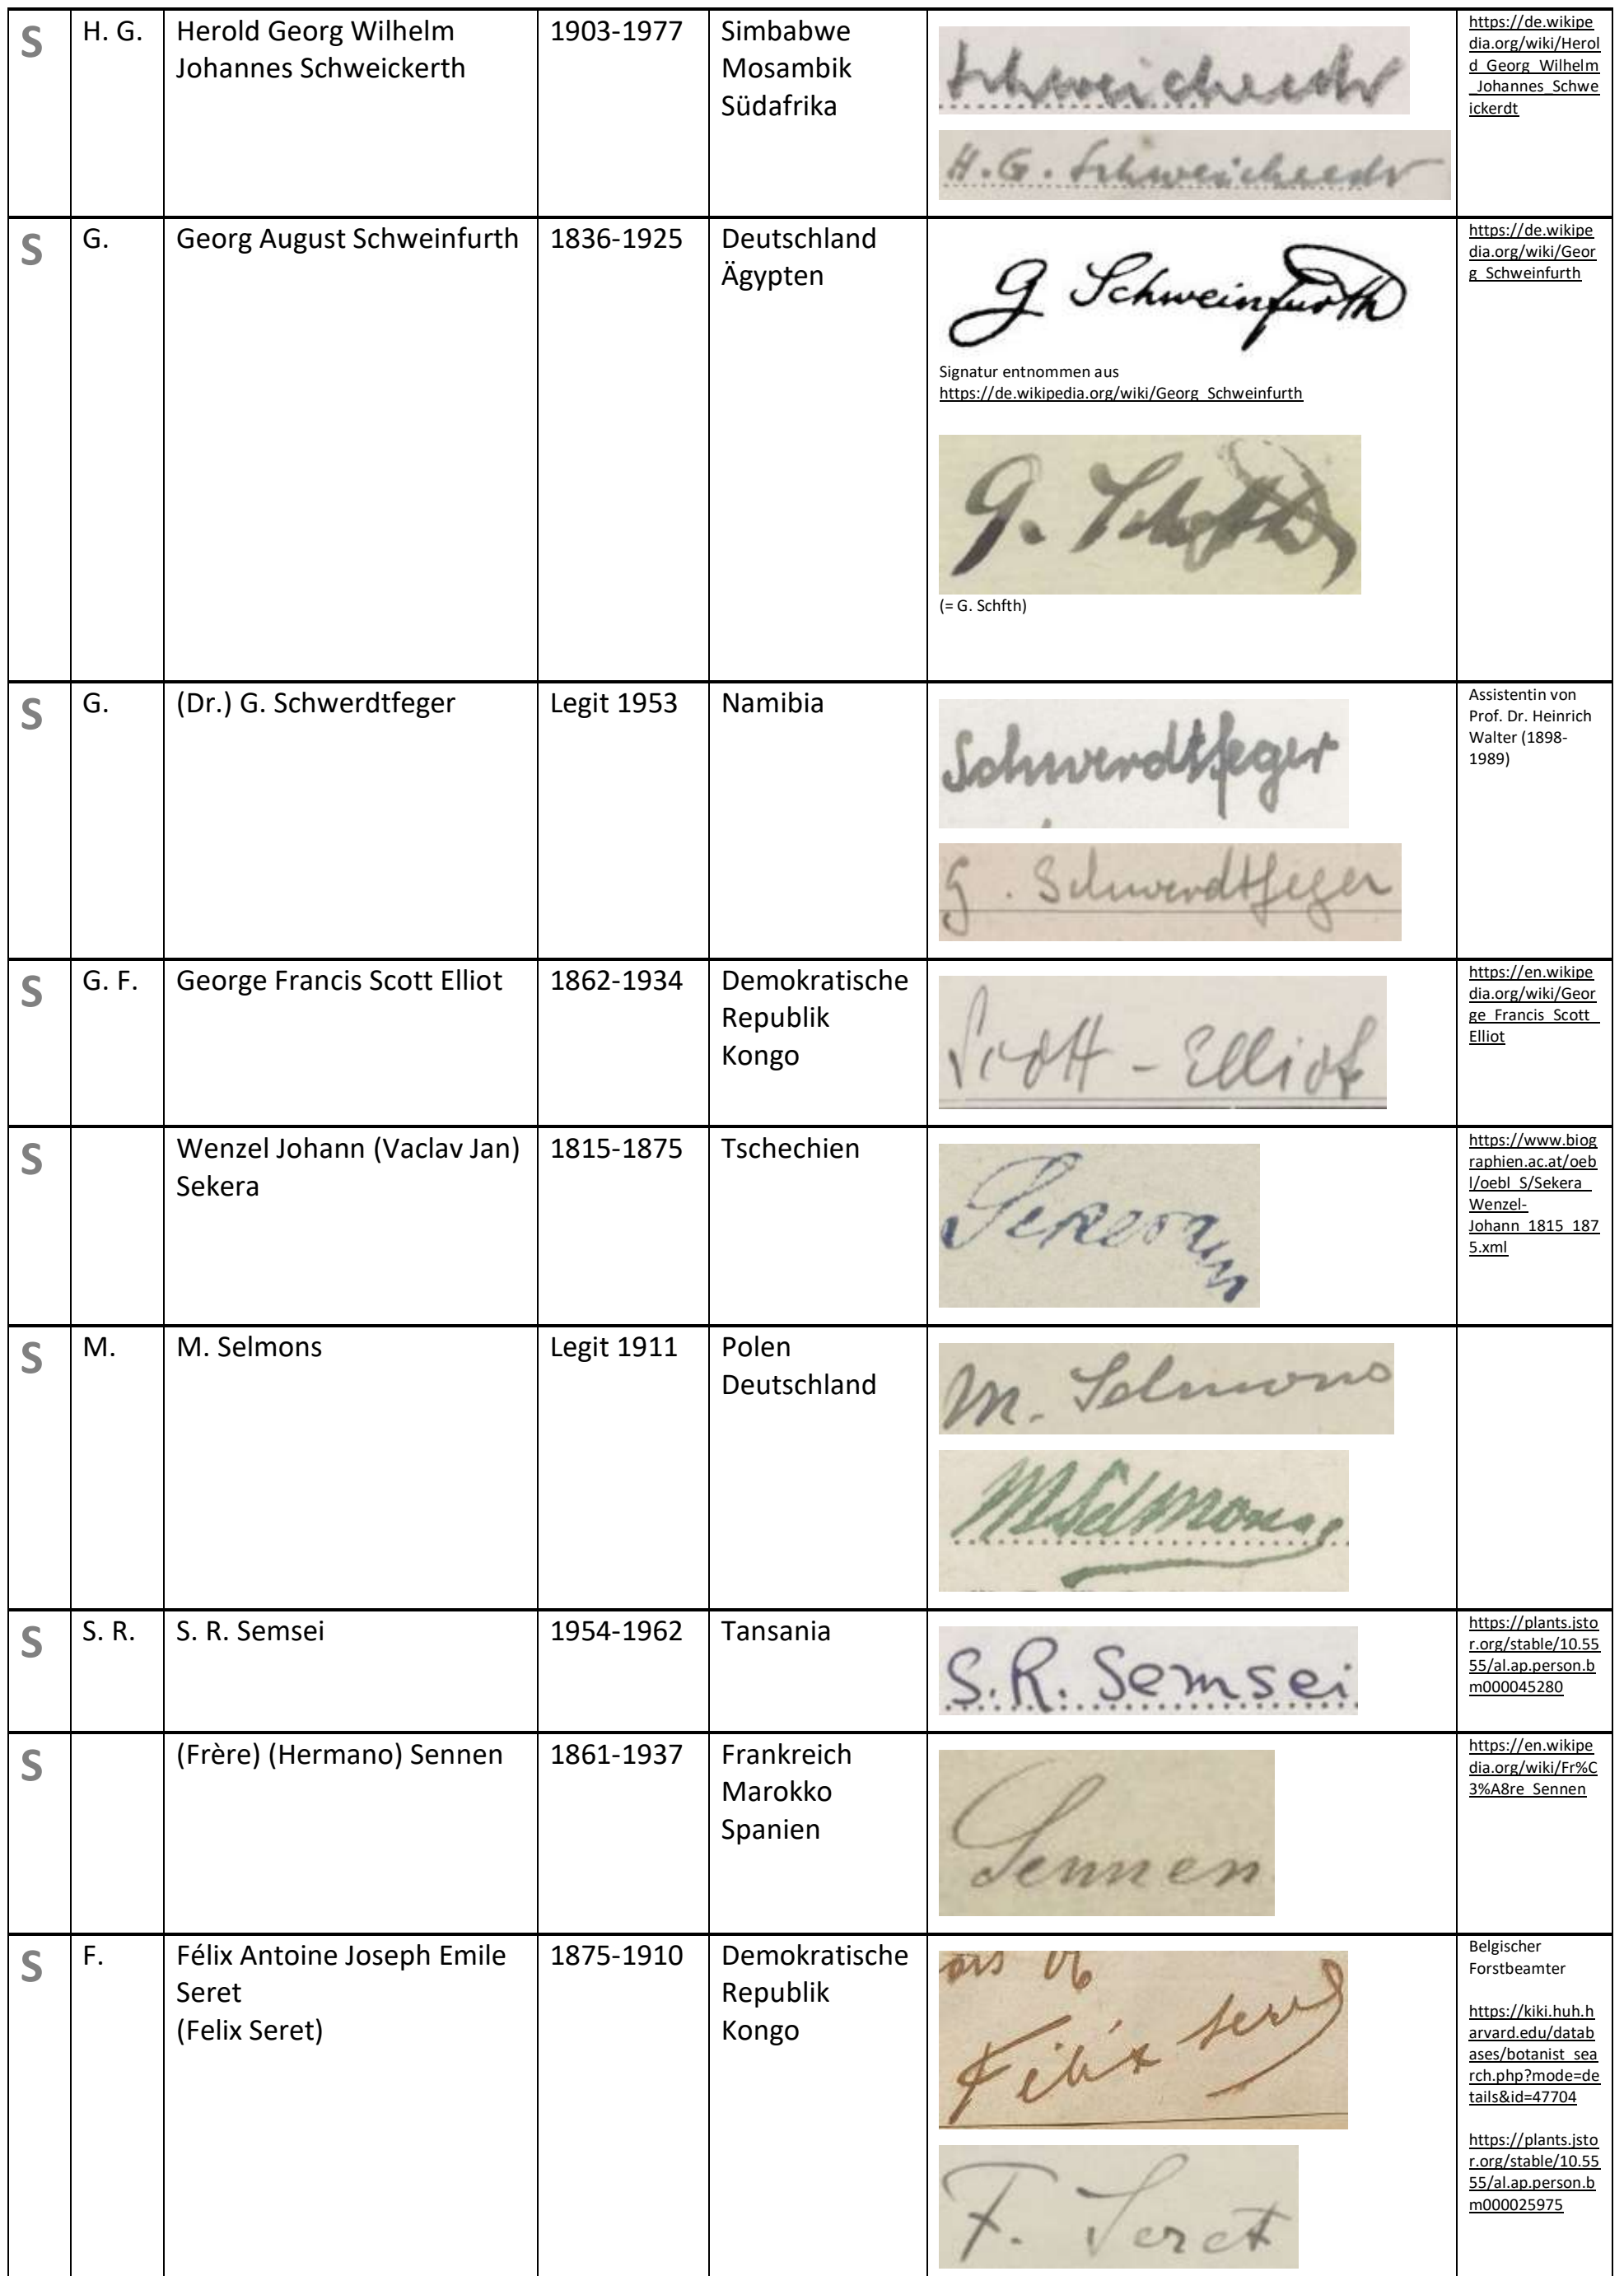 S
H. G.
Herold Georg Wilhelm
Johannes Schweickerth
1903-1977
Simbabwe
Mosambik
Südafrika
Schweickerdt
H. G. Schweickerdt
https://de.wikipe
dia.org/wiki/Herol
d_Georg_Wilhelm
_Johannes_Schwe
ickerdt
S
G.
Georg August Schweinfurth
1836-1925
Deutschland
Ägypten
G Schweinfurth
Signatur entnommen aus
https://de.wikipedia.org/wiki/Georg_Schweinfurth
G. Schfth
(= G. Schfth)
https://de.wikipe
dia.org/wiki/Geor
g_Schweinfurth
S
G.
(Dr.) G. Schwerdtfeger
Legit 1953
Namibia
Schwerdtfeger
G. Schwerdtfeger
Assistentin von
Prof. Dr. Heinrich
Walter (1898-
1989)
S
G. F.
George Francis Scott Elliot
1862-1934
Demokratische
Republik
Kongo
Scott - Elliot
https://en.wikipe
dia.org/wiki/Geor
ge_Francis_Scott_
Elliot
S
Wenzel Johann (Vaclav Jan)
Sekera
1815-1875
Tschechien
https://www.biog
raphien.ac.at/oeb
l/oebl_S/Sekera_
Wenzel-
Johann_1815_187
5.xml
S
M.
M. Selmons
Legit 1911
Polen
Deutschland
M. Selmons
M Selmons
S
S. R.
S. R. Semsei
1954-1962
Tansania
S.R. Semsei
https://plants.jsto
r.org/stable/10.55
55/al.ap.person.b
m000045280
S
(Frère) (Hermano) Sennen
1861-1937
Frankreich
Marokko
Spanien
Sennen
https://en.wikipe
dia.org/wiki/Fr%C
3%A8re_Sennen
S
F.
Félix Antoine Joseph Emile
Seret
(Felix Seret)
1875-1910
Demokratische
Republik
Kongo
Félix Seret
F. Seret
Belgischer
Forstbeamter
https://kiki.huh.h
arvard.edu/datab
ases/botanist_sea
rch.php?mode=de
tails&id=47704
https://plants.jsto
r.org/stable/10.55
55/al.ap.person.b
m000025975